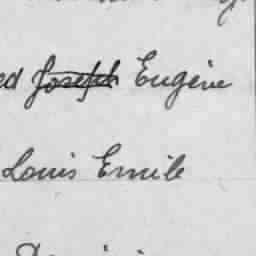 ed Joseph Eugène
Louis Emile